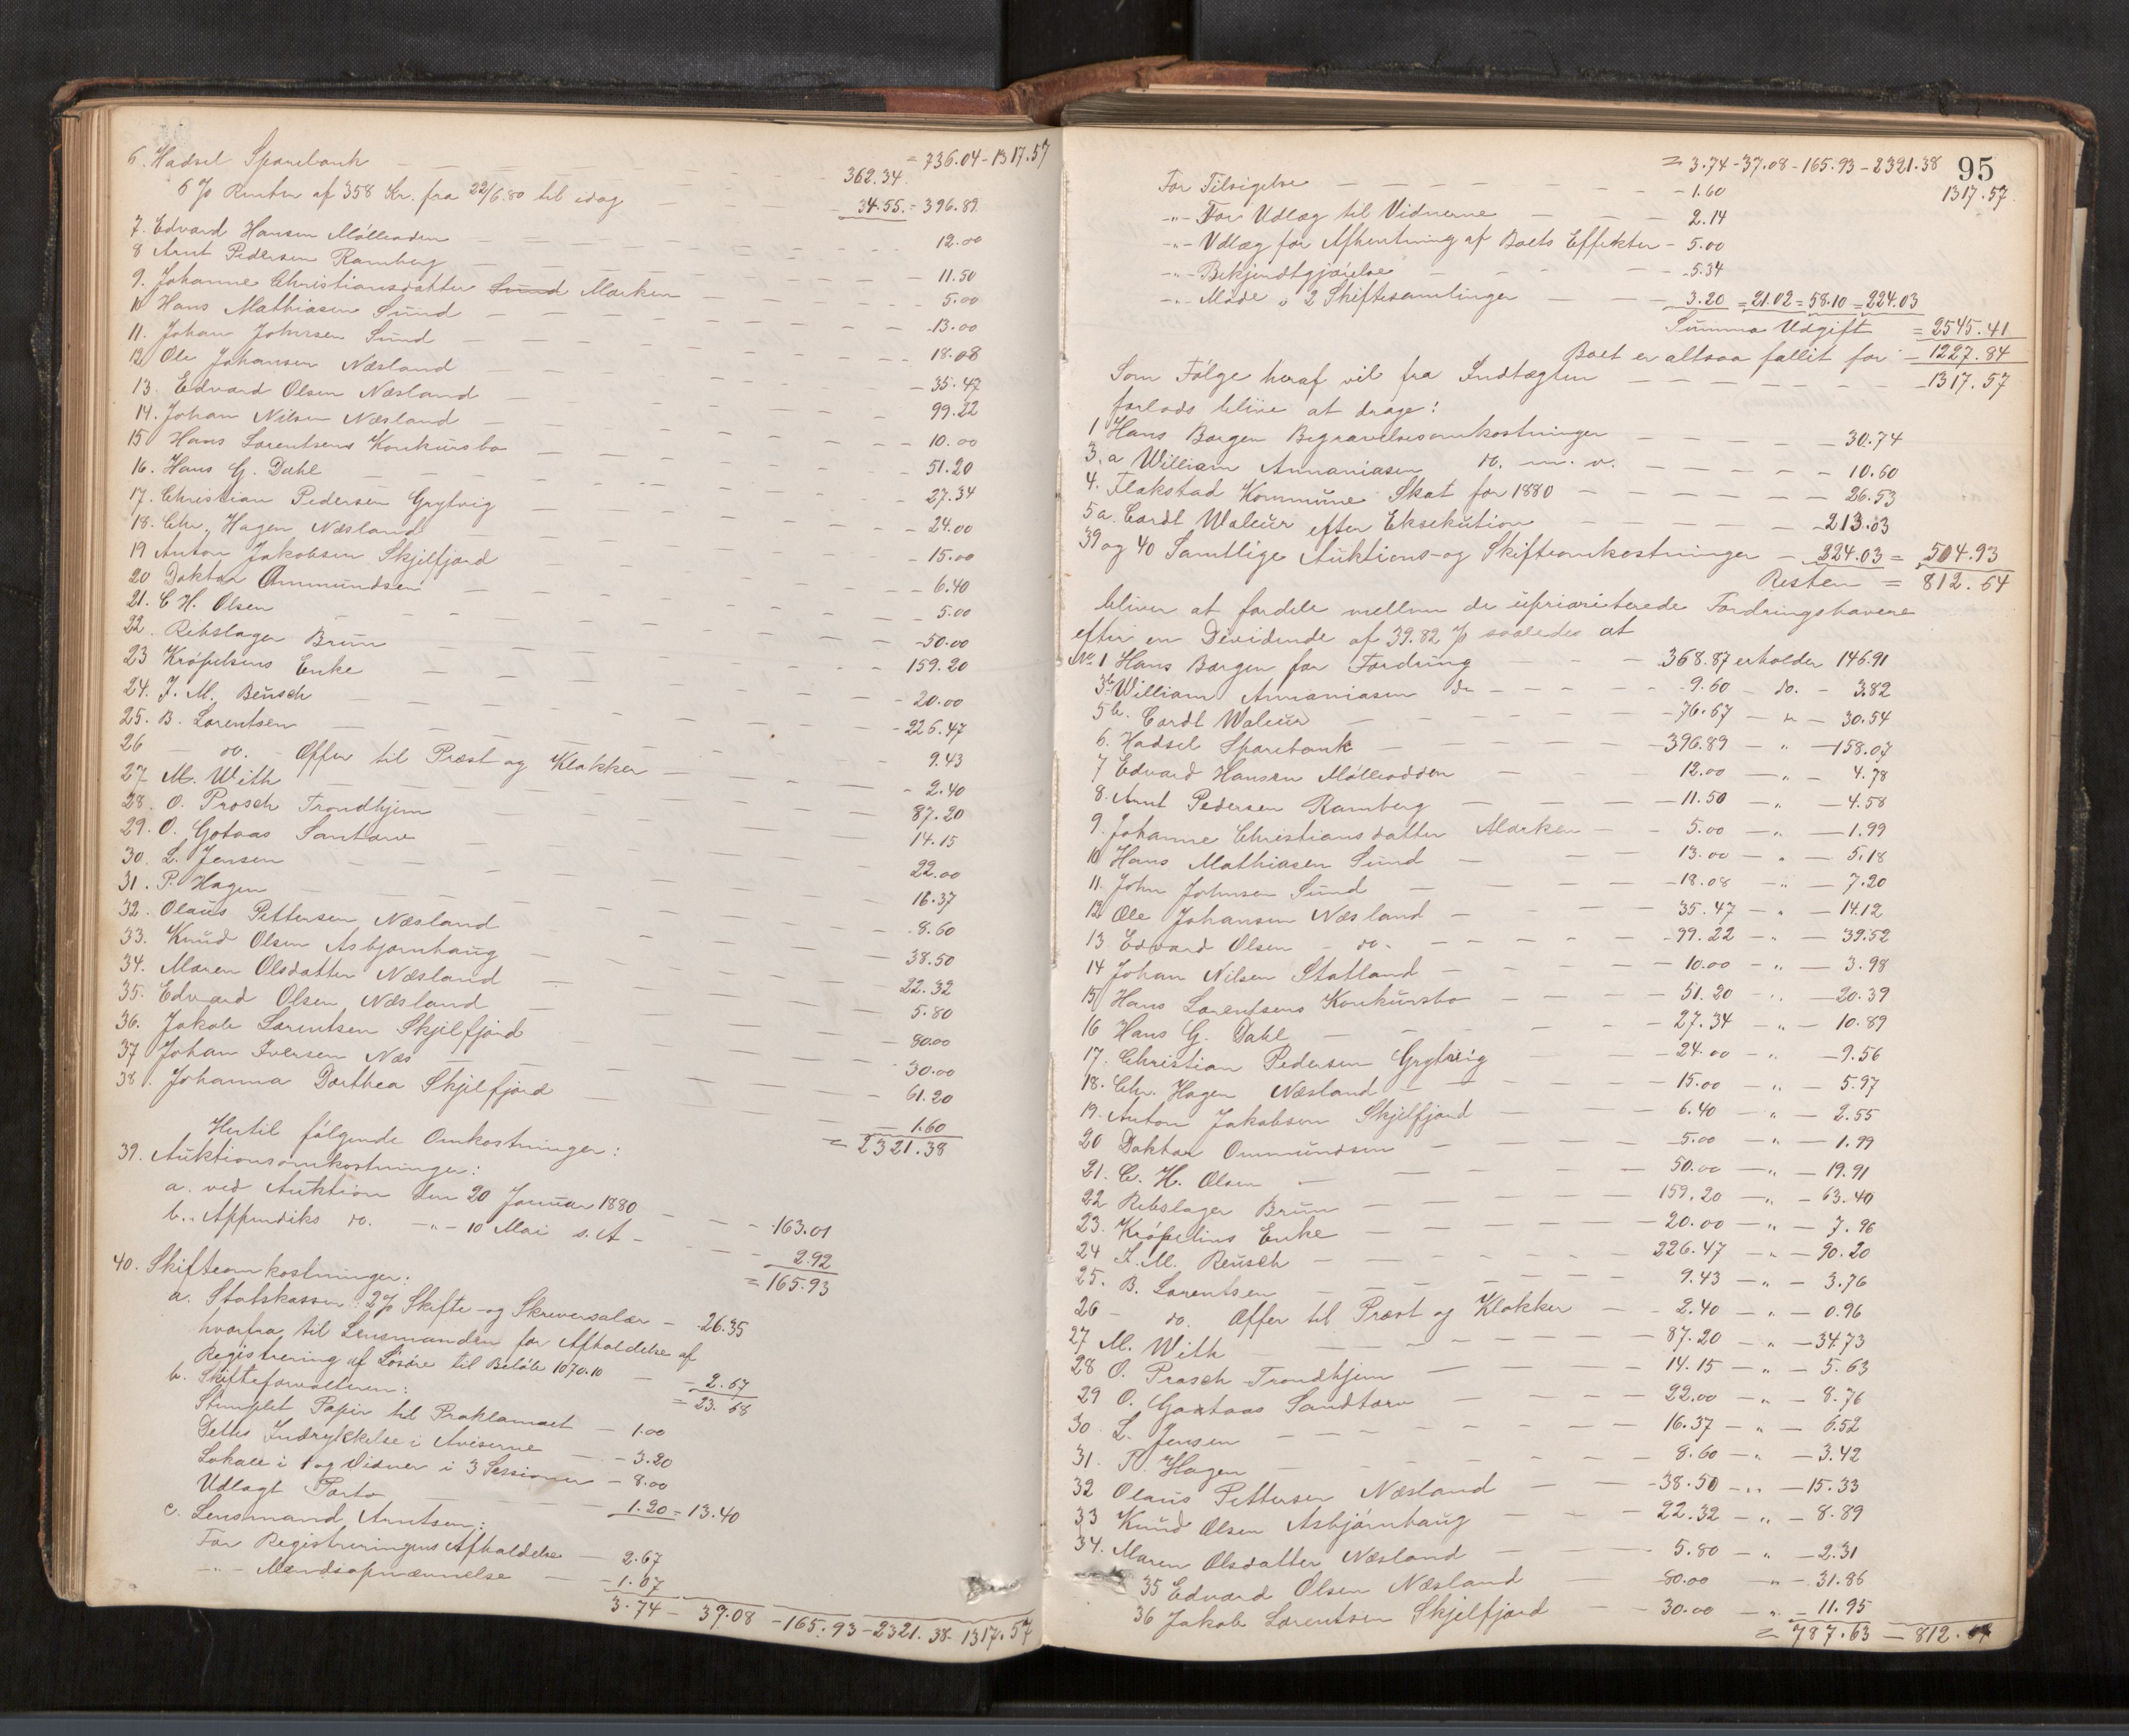 = 736.04 - 1317.57
6. Hadsel Sparebank — — — 362.34
6 % Renter af 358 Kr. fra 22/6.80 til idag — 34.55. = 396.89
7. Edvard Hansen Mölleodden — — — 12.00
8 Arnt Pedersen Ramberg — — — 11.50
9. Johanne Christiansdatter Sund Marken — — — 5.00
10 Hans Mathiasen Sund — — — 13.00
11. Johan Johnsen Sund — — — 18.08
12 Ole Johansen Næsland — — — 35.47
13. Edvard Olsen Næsland — — — 99.22
14. Johan Nilsen Næsland — — — 10.00
15 Hans Lorentsens Konkursbo — — — 51.20
16. Hans G. Dahl — — — 27.34
17. Christian Pedersen Grytvig — — — 24.00
18. Chr. Hagen Næsland — — — 15.00
19 Anton Jakobsen Skjelfjord — — — 6.40
20 Doktor Ommundsen — — — 5.00
21. C H. Olsen — — — 50.00
22. Rebslager Brun — — — 159.20
23 Kröpelins Enke — — — 20.00
24. J. M. Beusch — — — 226.47
25. B. Lorentsen — — — 9.43
26 — do. — Offer til Præst og Klokker — — — 2.40
27 M. With — — — 87.20
28. O. Prosch Trondhjem — — — 14.15
29. O. Gotaas Santorv — — — 22.00
30. L. Jensen — — — 16.37
31. P. Hagen — — — 8.60
32. Olaus Pettersen Næsland — — — 38.50
33. Knud Olsen Asbjørnhaug — — — 22.32
34. Maren Olsdatter Næsland — — — 5.80
35. Edvard Olsen Næsland — — — 80.00
36. Jakob Lorentsen Skjelfjord — — — 30.00
37 Johan Iversen Næs — — — 61.20
38. Johanna Dorthea Skjelfjord — — — 1.60
= 2321.38
Hertil følgende Omkostninger:
39. Auktionsomkostninger:
a. ved Auktion den 20 Januar 1880 — — — 163.01
b. " Appendiks do. — " — 10 Mai s. A — — — 2.92
= 165.93
40. Skifteomkostninger:
a. Statskassen: 2 % Skifte- og Skriversalær — 26.35
hvorfra til Lensmanden for Afholdelse af
Registrering af Løsøre til Beløb 1070.10 — — 2.67
= 23.68
b. Skifteforvalteren:
Stemplet Papir til Proklamaet — 1.00
Dettes Indrykkelse i Aviserne — 3.20
Lokale i 1 og Vidner i 3 Sessioner — 8.00
Udlagt Porto — — 1.20 = 13.40
c. Lensmand Arntsen:
For Registreringens Afholdelse — 2.67
— " — Mændsopnævnelse — 1.07
3.74 — 39.08 — 165.93 — 2321.38 - 1317.57
95
= 3.74 - 37.08 - 165.93 - 2321.38
1317.57.
For Tilsigelse — — — 1.60
— " — For Udlæg til Vidnerne — — — 2.14
— " — Udlæg for Afhentning af Boets Effekter - 5.00
— " — Bekjendtgjørelse — — — 5.34
— " — Møde i 2 Skiftesamlinger — — 3.20 = 21.02 = 58.10 = 224.03
Summa Udgift = 2545.41
Boet er altsaa fallit for — 1227.84
Som Følge heraf vil fra Indtægten — — — 1317.57
forlods blive at drage:
1 Hans Borgen Begravelsesomkostninger — — — 30.74
3. a William Annaniasen do. m. v. — — — 10.60
4. Flakstad Kommune Skat for 1880 — — — 26.53
5 a. Cordt Waleur efter Eksekution — — — 213.03
39 og 40 Samtlige Auktions- og Skifteomkostninger — 224.03 = 504.93
Resten = 812.64
bliver at fordele mellem de upriorieterede Fordringshavere
efter en Devidende af 39.82 % saaledes at
No 1 Hans Borgen for Fordring — — 368.87 erholder 146.91
3b William Annaniasen do — — — 9.60 — do. — 3.82
5 b. Cordt Waleur — — — 76.67 — " — 30.54
6. Hadsel Sparebank — — — 396.89 — " — 158.07
7 Edvard Hansen Mölleodden — — 12.00 — " — 4.78
8. Arnt Pedersen Ramberg — — — 11.50 — " — 4.58
9. Johanne Christiansdatter Marken — — 5.00 — " — 1.99
10 Hans Mathiasen Sund — — — 13.00 — " — 5.18
11. John Johnsen Sund — — — 18.08 — " — 7.20
12 Ole Johansen Næsland — — — 35.47 — " — 14.12
13 Edvard Olsen — do. — — — 99.22 — " — 39.52
14 Johan Nilsen Statland — — — 10.00 — " — 3.98
15 Hans Lorentsens Konkursbo — — — 51.20 — " — 20.39
16 Hans G. Dahl — — — 27.34 — " — 10.89
17. Christian Pedersen Grytvig — 24.00 — " — 9.56
18. Chr. Hagen Næsland — — — 15.00 — " — 5.97
19. Anton Jakobsen Skjelfjord — — — 6.40 — " — 2.55
20 Doktor Ommundsen — — — 5.00 — " — 1.99
21. C. H. Olsen — — — 50.00 — " — 19.91
22 Rebslager Brun — — — 159.20 — " — 63.40
23. Kröpelins Enke — — — 20.00 — " — 7.96
24 J. M. Beusch — — — 226.47 — " — 90.20
25. B. Lorentsen — — — 9.43 — " — 3.76
26 — do. Offer til Præst og Klokker — — 2.40 — " — 0.96
27 M. With — — — 87.20 — " — 34.73
28 O. Prosch Trondhjem — — — 14.15 — " — 5.63
29 O. Gotaas Sandtorv — — — 22.00 — " — 8.76
30 L. Jensen — — — 16.37 — " — 6.52
31. P. Hagen — — — 8.60 — " — 3.42
32 Olaus Pettersen Næsland — — 38.50 — " — 15.33
33 Knud Olsen Asbjørnhaug — — 22.32 — " — 8.89
34. Maren Olsdatter Næsland — — 5.80 — " — 2.31
35 Edvard Olsen Næsland — 80.00 — " — 31.86
36 Jakob Lorentsen Skjelfjord — — 30.00 — " — 11.95
= 787.63 — 812.64